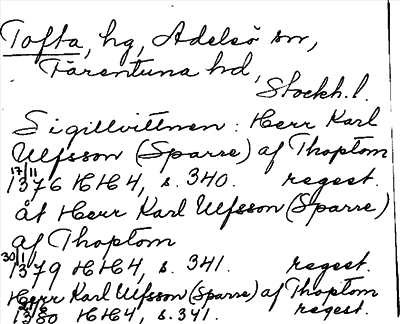 Tofta, hg, Adelsö sn,
Färentuna hd,
Stockh. l.
Sigillvittnen: Herr Karl
Ulfsson (Sparre) af Thoptom
17/11
1376 HH4, s. 340. regest.
åt Herr Karl Ulfsson (Sparre)
af Thoptom
30/1
1379 HH4, s. 341. regest.
Herr Karl Ulfsson (Sparre) af Thoptom
1380 HH4, s. 341. regest.